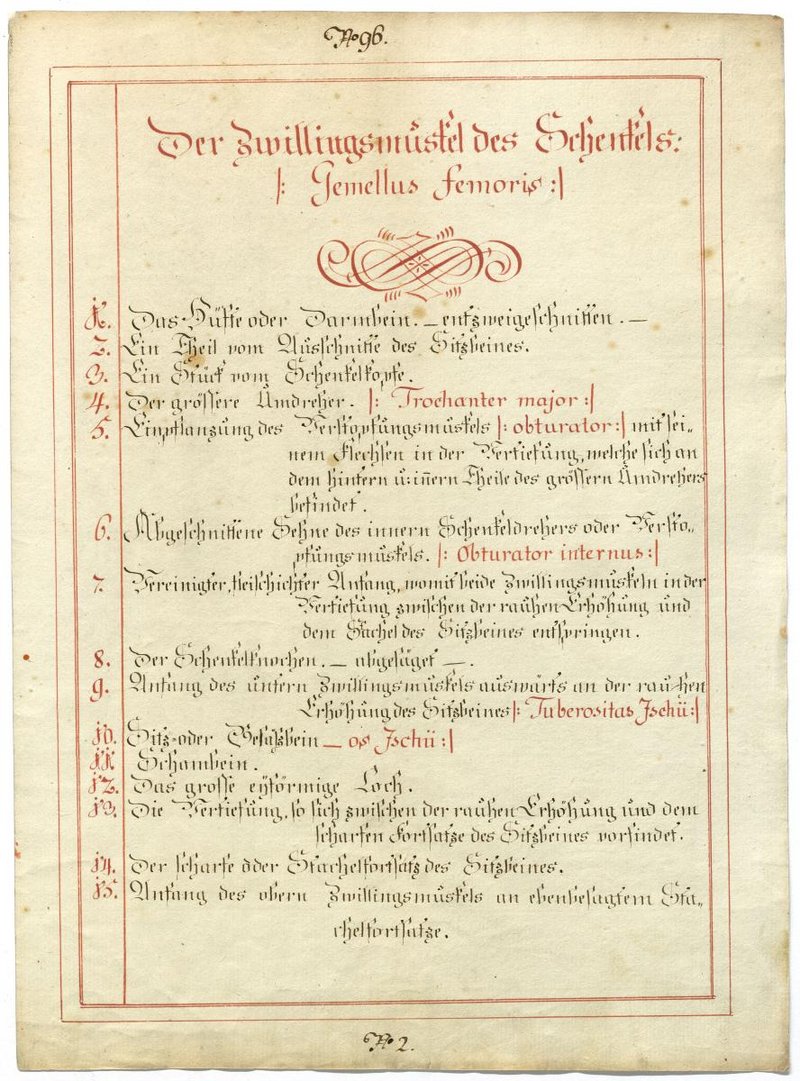 No 96.
Der Zwillingsmuskel des Schenkels:
|: Gemellus femoris :|
1. Das Hüfte oder Darmbein. — entzweigeschnitten. —
2. Ein Theil vom Ausschnitte des Sitzbeines.
3. Ein Stück vom Schenkelkopfe.
4. Der grössere Umdreher. |: Trochanter major :|
5. Einpflanzung des Verstopfungsmuskels |: obturator :| mit sei-
nem Flechsen in der Vertiefung, welche sich an
dem hintern u: innern Theile des grössern Umdrehers
befindet.
6. Abgeschnittene Sehne des innern Schenkeldrehers oder Versto„
pfungsmuskels. |: Obturator internus :|
7. Vereinigter, fleischichter Anfang, womit beide Zwillingsmuskeln in der
Vertiefung zwischen der rauhen Erhöhung und
dem Stachel des Sitzbeines entspringen.
8. Der Schenkelknochen. — abgesäget —.
9. Anfang des untern Zwillingsmuskels auswärts an der rauhen
Erhöhung des Sitzbeines |: Tuberositas Jschii :|
10. Sitz- oder Gesässbein — os Jschii :|
11. Schambein.
12. Das grosse eyförmige Loch.
13. Die Vertiefung, so sich zwischen der rauhen Erhöhung und dem
scharfen Fortsatze des Sitzbeines vorfindet.
14. Der scharfe oder Stachelfortsatz des Sitzbeines.
15. Anfang des obern Zwillingsmuskels an ebenbesagtem Sta„
chelfortsatze.
No 2.